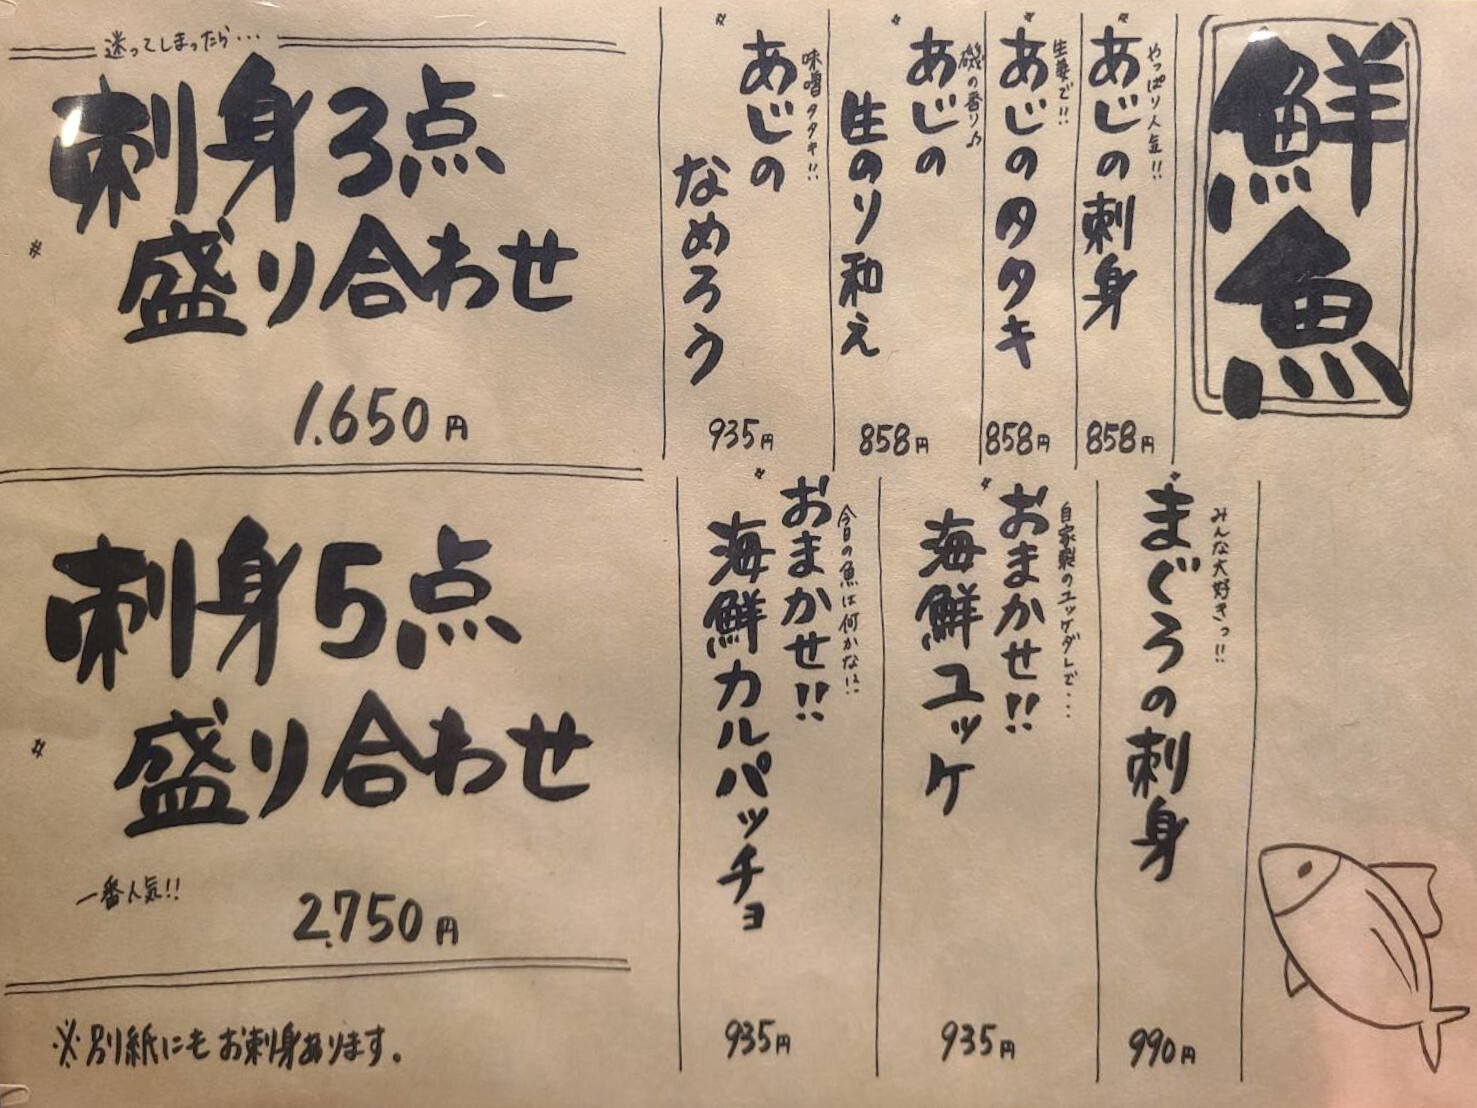 鮮魚
やっぱり人気!!
あじの刺身
858円
生姜で!!
あじのタタキ
858円
磯の香り♪
あじの
生のり和え
858円
味噌タタキ!!
あじの
なめろう
935円
みんな大好きっ!!
まぐろの刺身
990円
自家製のユッケダレで...
おまかせ!!
海鮮ユッケ
935円
今日の魚は何かな!?
おまかせ!!
海鮮カルパッチョ
935円
迷ってしまったら...
刺身3点
盛り合わせ
1,650円
刺身5点
盛り合わせ
一番人気!!
2,750円
※別紙にもお刺身あります。